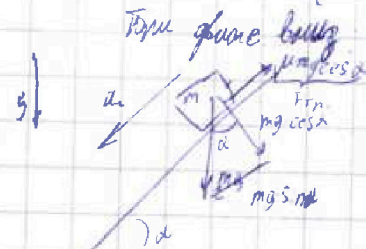 При движе вниз
μmg cosα
a₁
m
Fтр.
g
mg cosα
α
mg
mg sinα
)α